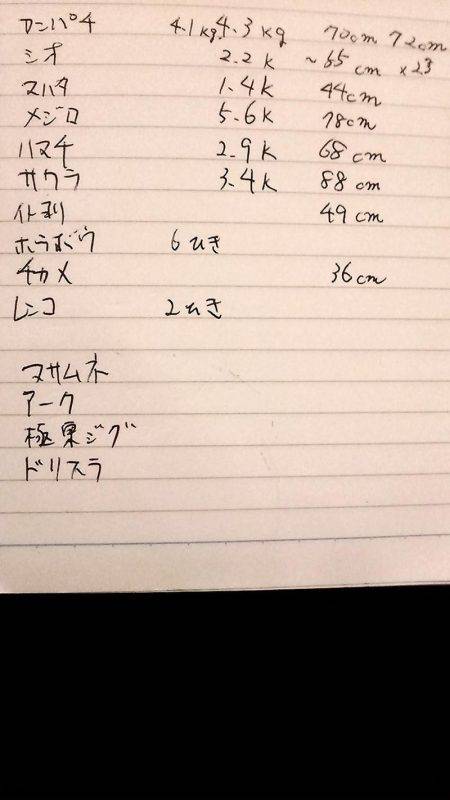 カンパチ 4.1kg 4.3kg 70cm 72cm
シオ 2.2k ~65cm ×23
マハタ 1.4k 44cm
メジロ 5.6k 78cm
ハマチ 2.9k 68cm
サワラ 3.4k 88cm
イトヨリ 49cm
ホウボウ 6ひき
チカメ 36cm
レンコ 2ひき
マサムネ
アーク
極黒ジグ
ドリスラ